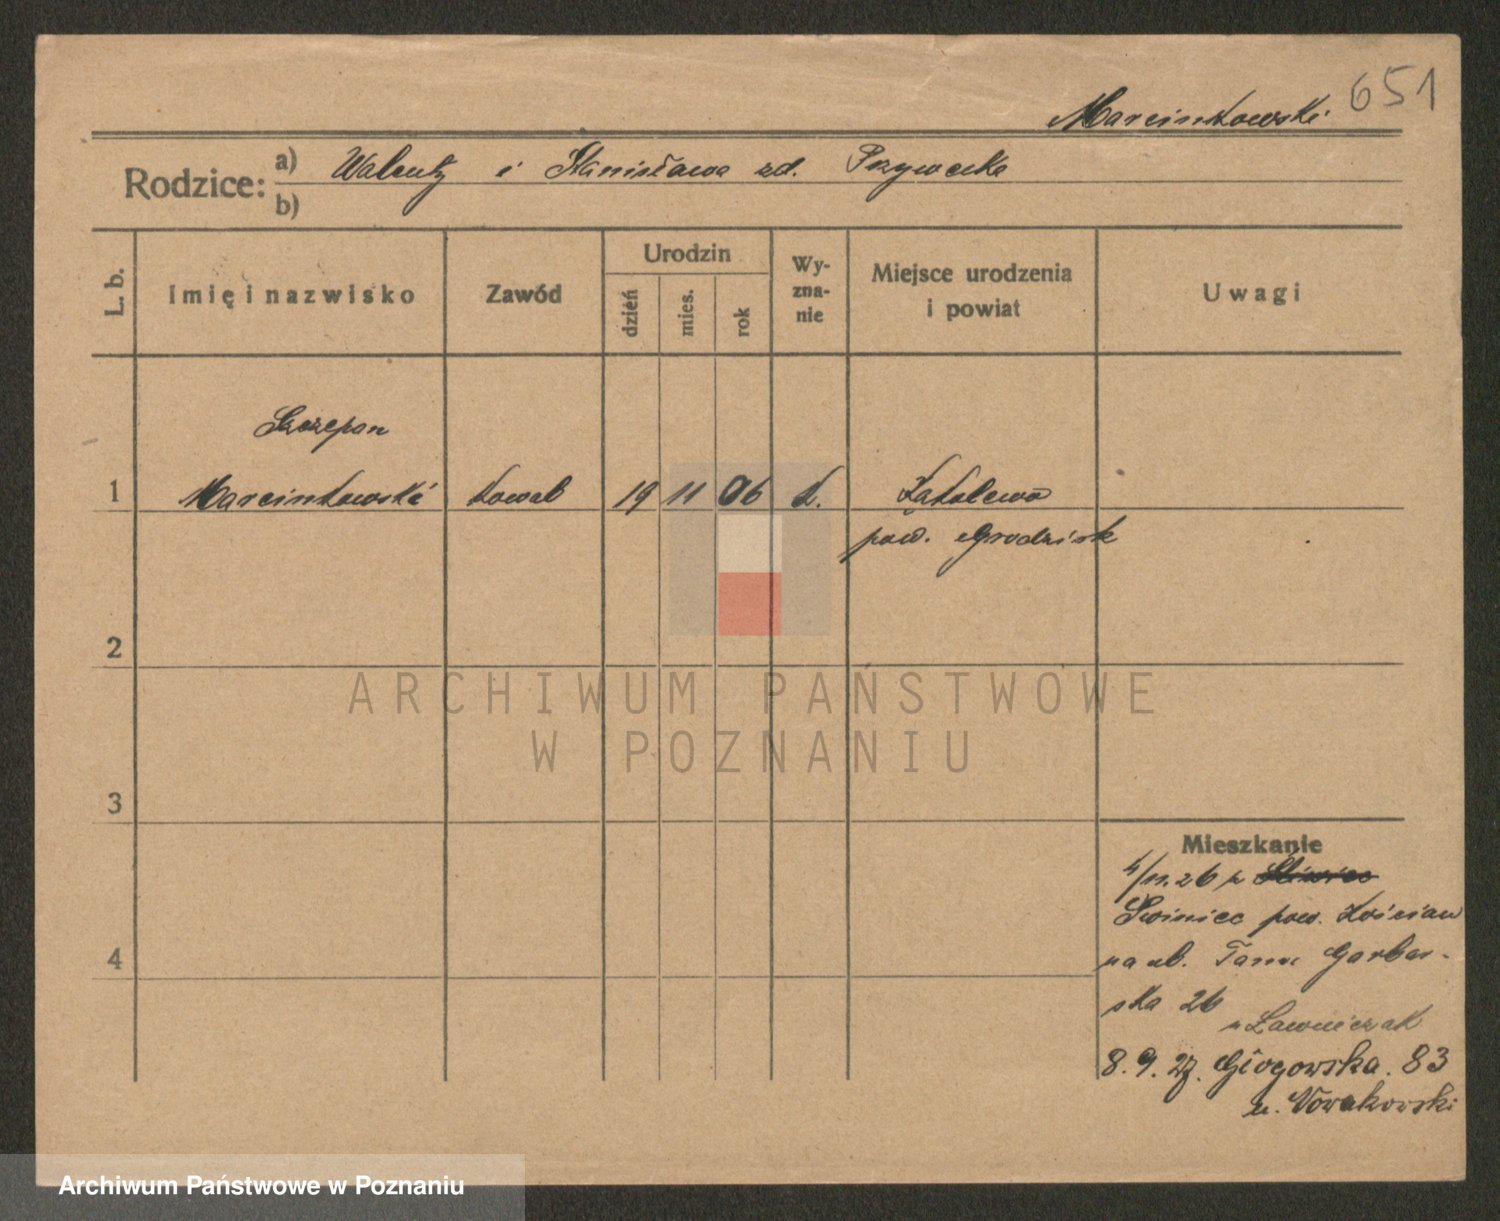 651
Marcinkowski
Rodzice: a) Walenty i Stanisława zd.
b)
L. b.
Imię i nazwisko
Zawód
Urodzin
dzień
mies.
rok
Wy-
zna-
nie
Miejsce urodzenia
i powiat
Uwagi
Szczepan
1 Marcinkowski kowal 19 11 06 k. Kąkolewo
pow. Grodzisk
2
3
4
Mieszkanie
4/11.26 z
Świniec pow. Kościan
na ul. Tama Garbar-
ska 26
u Ławniczak
8.9.27. Głogowska. 83
u. Nowakowski
ARCHIWUM PAŃSTWOWE
W POZNANIU
Archiwum Państwowe w Poznaniu